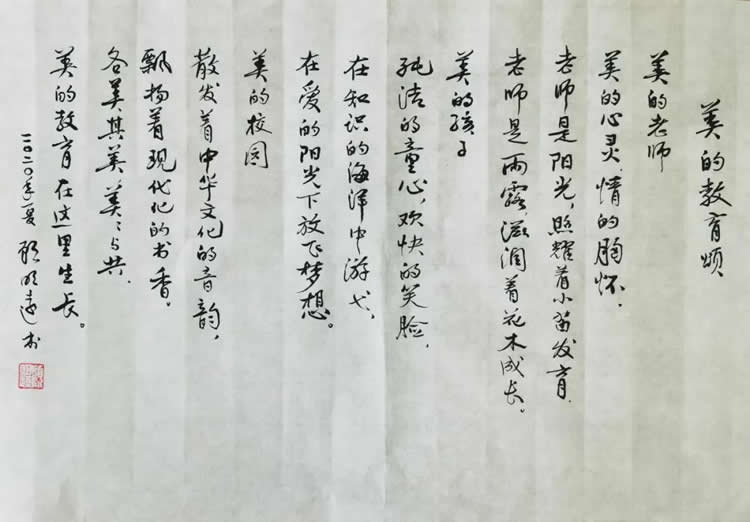 美的教育颂
美的老师
美的心灵,情的胸怀,
老师是阳光,照耀着小苗发育.
老师是雨露,滋润着花木成长。
美的孩子
纯洁的童心,欢快的笑脸,
在知识的海洋中游弋,
在爱的阳光下放飞梦想。
美的校园
散发着中华文化的音韵,
飘扬着现代化的书香。
各美其美美〻与共.
美的教育在这里生长。
二〇二〇年夏 顾明远书